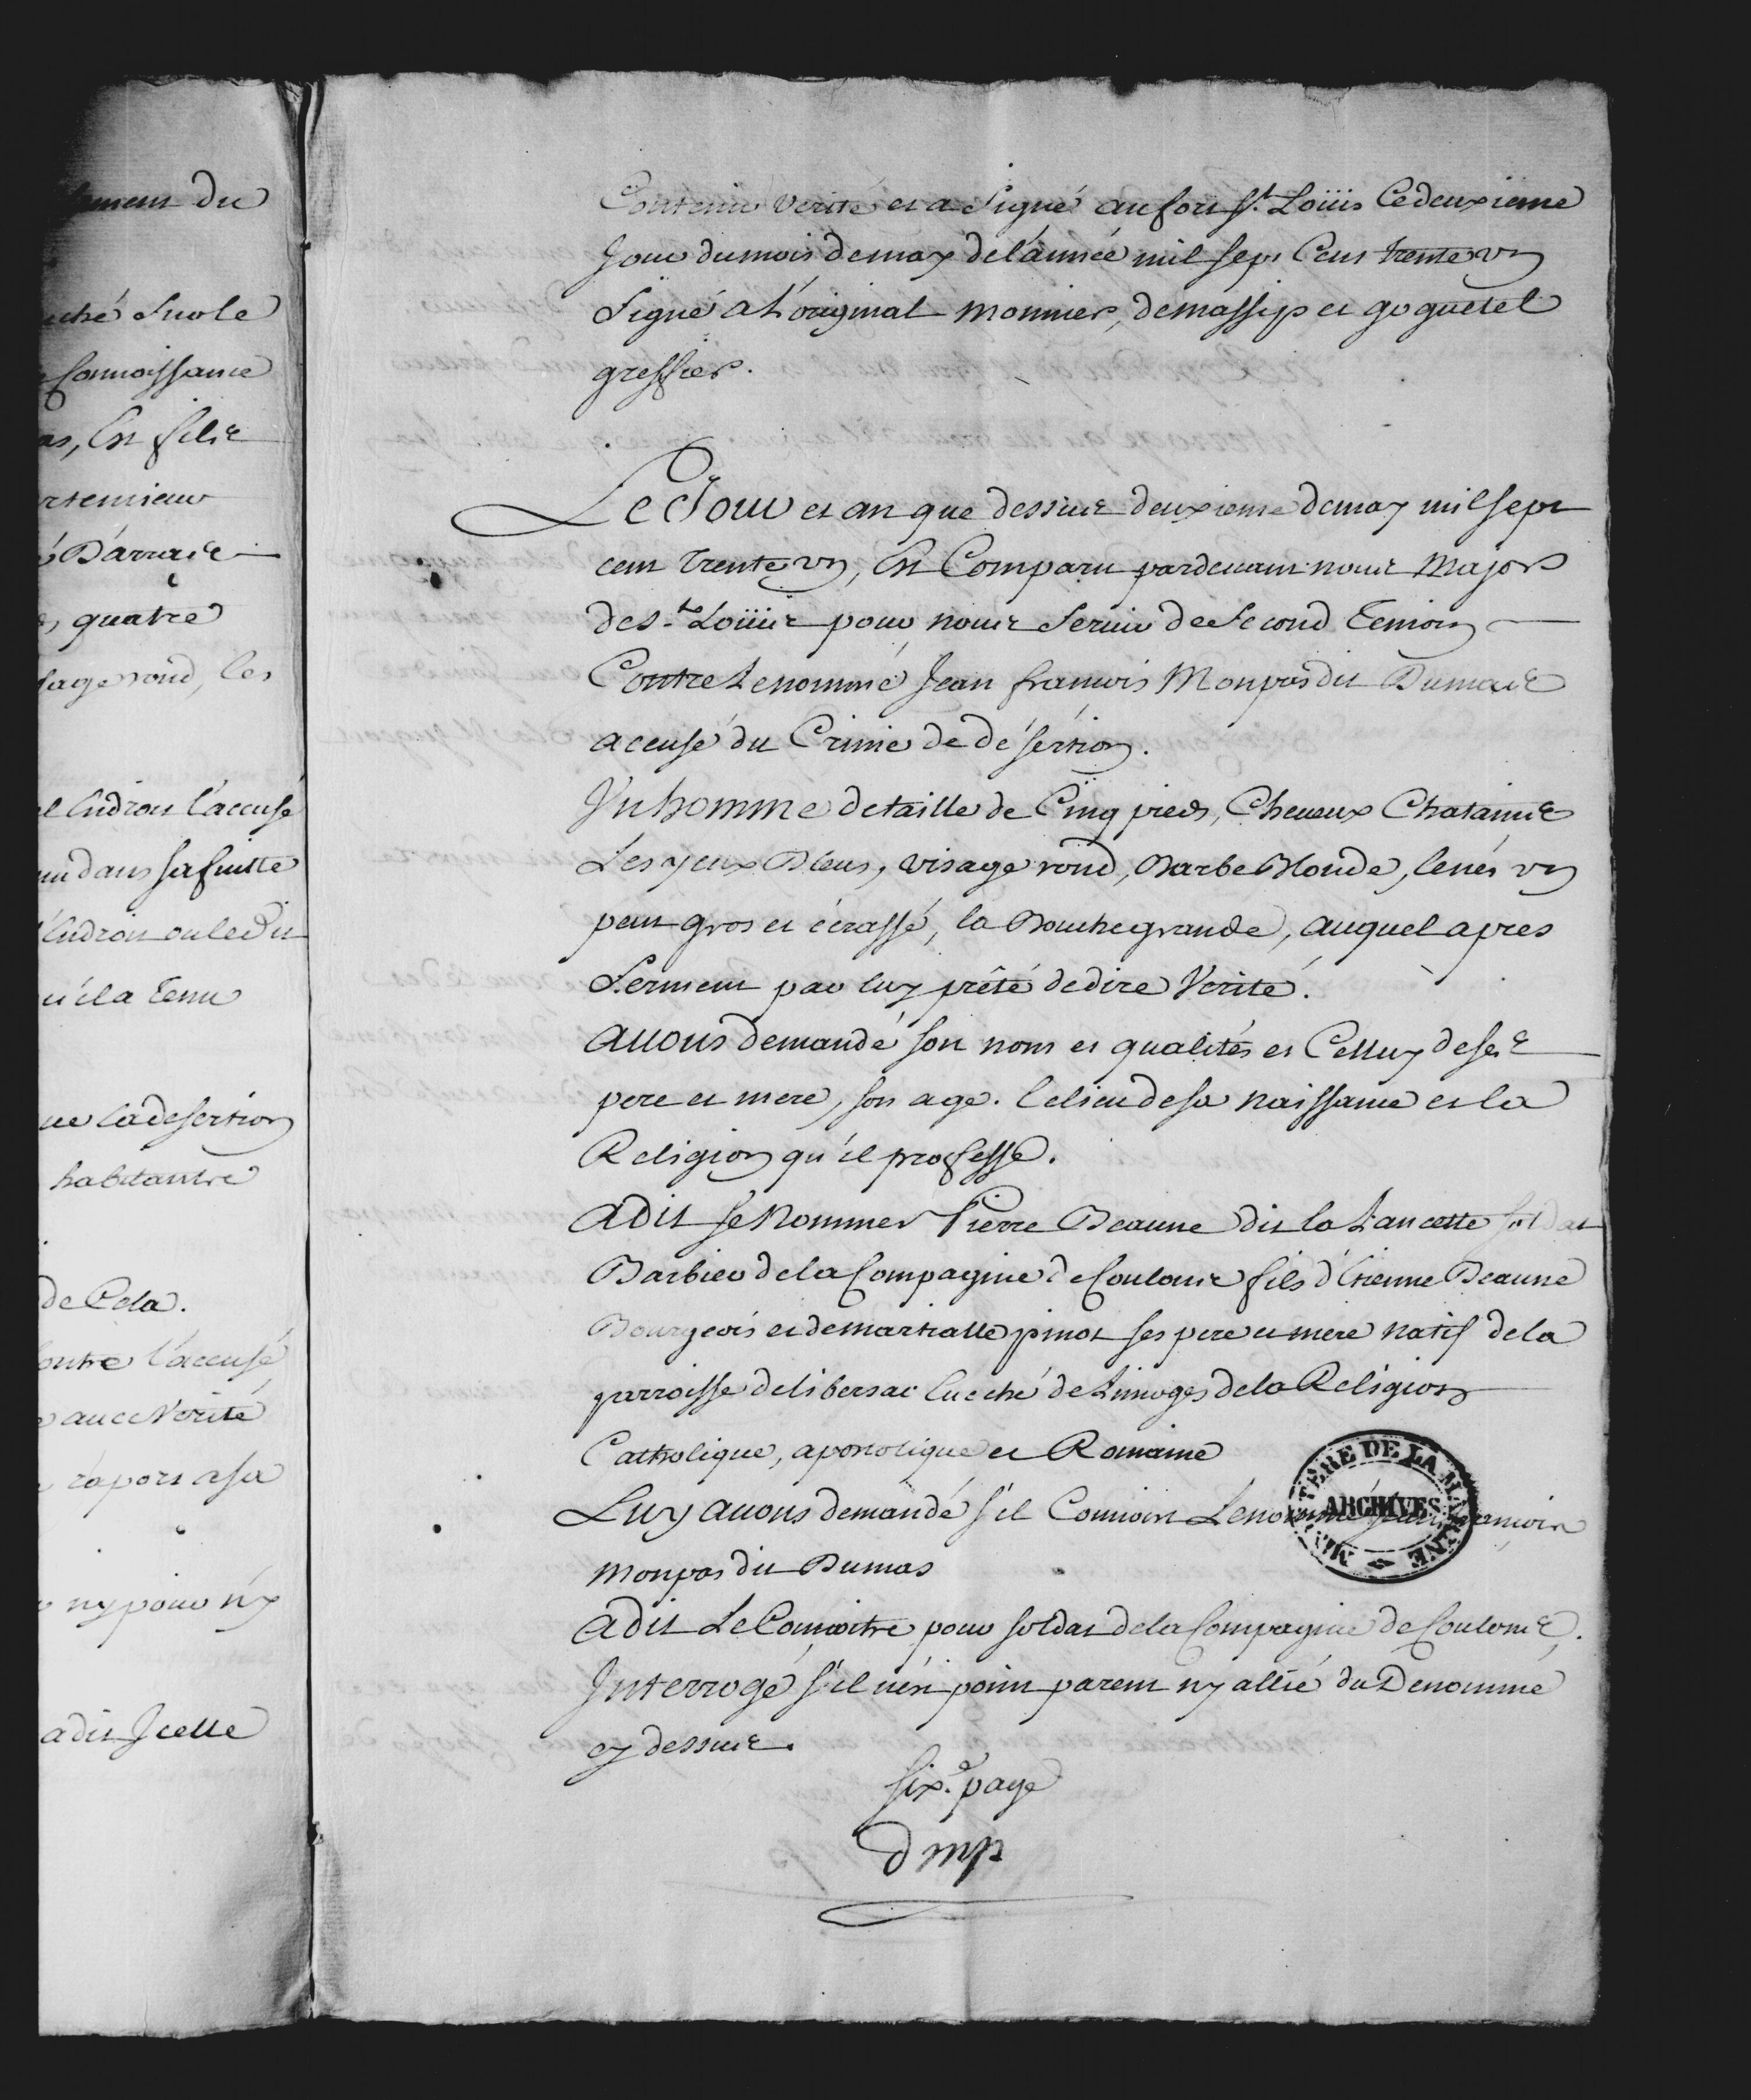 ement du
uché sur le
Connoissance
as, Est filz
quatre
sage rond, les
l'accusé
dans sa fuitte
ou le dit
la tenu
la desertion
habitantre
de Cela.
contre l'accusé
avec Verité
raport a sa
ny pour n'y
a dit Jcelle
Contenir verité et a signé au fort St. Loüis Ce deuxieme
Jour du mois de may de l'année mil sept Cens trente vn
Signé a L'original monnier, demassip et goguetel
greffier.
Le Jour et an que dessus deuxieme de may mil sept
cent trente vn, Est Comparu pardevant nous Major
de St. Loüis pour nous servir de second Temoin
Contre Le nommé Jean francois Monpas dit Dumas
accusé du Crime de désértion.
Vn homme de taille de Cinq pieds, Cheveux Chatains
Les yeux Bleus, visage rond, Barbe Blonde, le nés vn
peu gros et écrassé, la Bouche grande, auquel apres
Serment par luy prêté de dire Verité.
avons demandé son nom et qualités et Celluy de ses
pere et mere, son age. le lieu de sa naissance et la
Religion qu'il professe.
a dit se Nommer Pierre Beaune dit la Lancette soldat
Barbier de la Compagnie de Coulons fils d'Etienne Beaune
Bourgeois et de martialle pinot ses pere et mere natif de la
parroisse de libersac Eveché de Limoges de la Religion
Catholique, apostolique et Romaine
Luy avons demandé s'il Connoist Le nommé Jean francois
Monpas dit Dumas
a dit Le Connoitre pour soldat de la Compagnie de Coulons.
Interrogé s'il n'est point parent ny allié du Denommé
cy dessus.
six.e page
dmp
MINISTERE DE LA MARINE
ARCHIVES